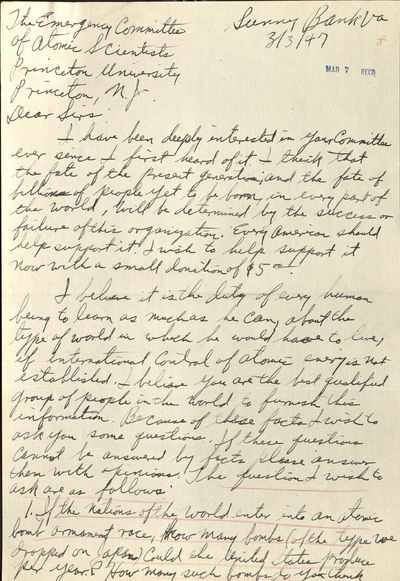 The Emergency Committee
of Atomic Scientists
Princeton University
Princeton, N.J.
Sunny Bank Va
3/3/47
MAR 7 RECD
Dear Sirs:
I have been deeply interested in your Committee
ever sence I first heard of it. I think that
the fate of the present generation, and the fate of
billions of people yet to be born, in every part of
the world, will be determined by the success or
failure of this organization. Every American should
help support it. I wish to help support it
now with a small donition of $5 00.
I believe it is the duty of every human
being to learn as much as he can, about the
type of world in which he would have to live,
if international Control of atomic energy is not
established. I believe you are the best qualified
group of people in the world to furnish this
information. Because of these facts I wish to
ask you some questions. If these questions
Cannot be answered by facts please answer
them with opinions. The question I wish to
ask are as follows:
1. If the Nations of the world enter into an atomic
bomb armament race, How many bombs (of the type we
dropped on Japan) Could the United States produce
per year? How many such bombs do you think